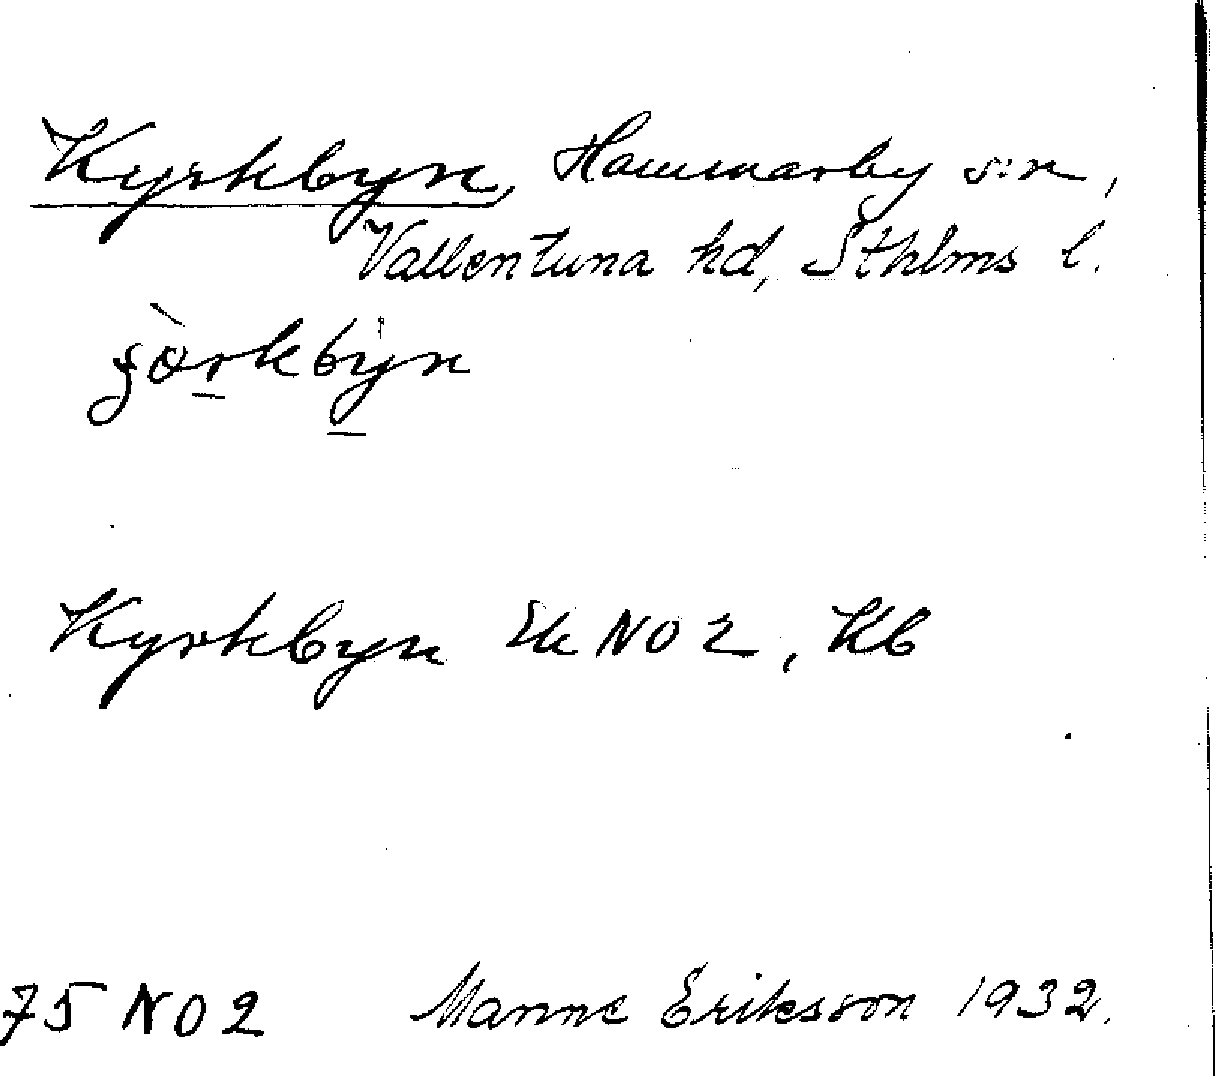 Kyrkbyn, Hammarby s:n,
Vallentuna hd, Sthlms l.
Kyrkbyn Ek NO 2, Kb
75 NO 2 Manne Eriksson 1932.